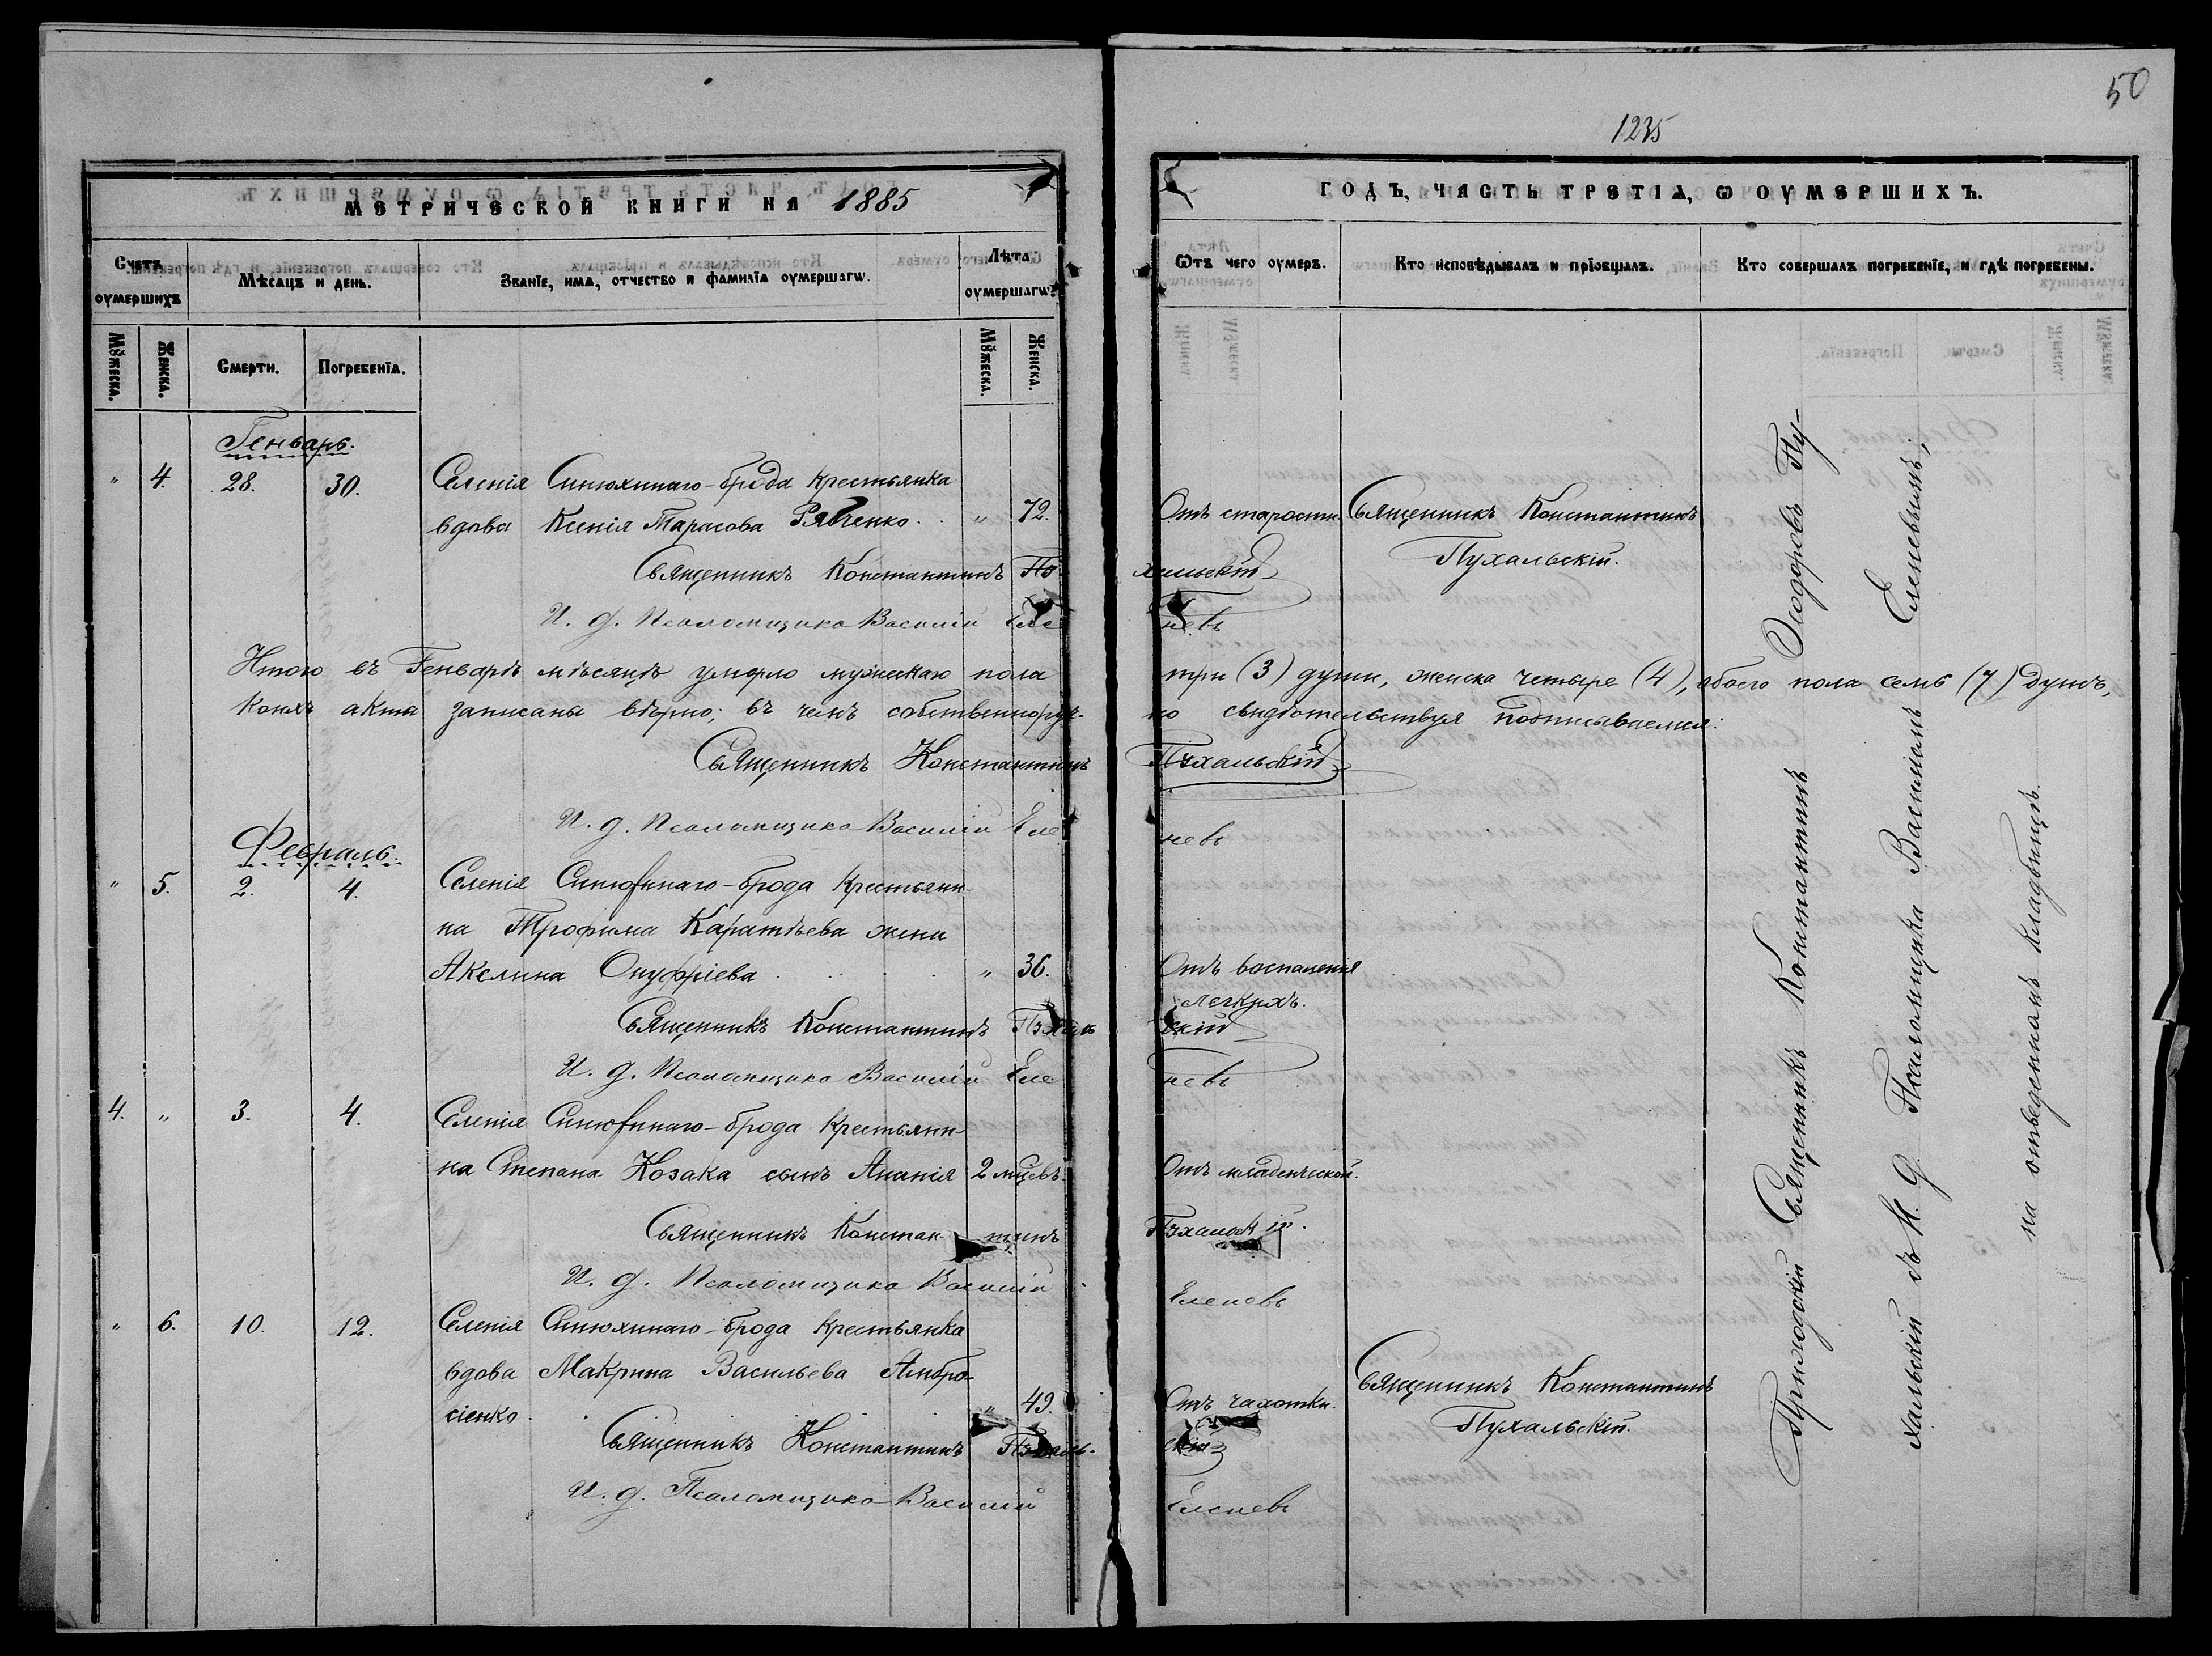 50
1235
МЕТРИЧЕСКОЙ КНИГИ НА 1885
ГОДЪ, ЧАСТЬ ТРЕТІѦ, Ѡ ОУМЕРШИХЪ.
Счетъ оумершихъ
Мѣсяцъ и день.
Званїе, имѧ, отчество и фамилїѧ оумершагѡ.
Лѣта оумершагѡ.
Ѿтъ чего оумеръ.
Кто исповѣдывалъ и прїобщалъ.
Кто совершалъ погребенїе, и гдѣ погребены.
Мꙋжеска.
Женска.
Смерти.
Погребенїѧ.
Мꙋжеска.
Женска.
Генварь.
" 4. 28. 30. Селенія Синюхинаго-брода крестьянка
вдова Ксенія Тарасова Рябченко . . " 72. Отъ старости. Священникъ Константинъ
Пухальскій.
Священникъ Константинъ Пухальскій
И. д. Псаломщика Василій Еленевъ
Итого въ Генварѣ мѣсяцѣ умерло мужескаго пола три (3) души, женска четыре (4), обоего пола семь (7) душъ,
коихъ акты записаны вѣрно; въ чемъ собственноручно свидѣтельствуя подписываемся:
Священникъ Константинъ Пухальскій
И. д. Псаломщика Василій Еленевъ
Февраль.
" 5. 2. 4. Селенія Синюхинаго-брода крестьяни-
на Трофима Каратѣева жена
Акелина Онуфріева . . . . " 36. Отъ воспаленія
легкихъ.
Священникъ Константинъ Пухальскій
И. д. Псаломщика Василій Еленевъ
4. " 3. 4. Селенія Синюхинаго-брода крестьяни-
на Степана Козака сынъ Ананія 2 мцевъ. Отъ младенческой.
Священникъ Константинъ Пухальскій.
И. д. Псаломщика Василій Еленевъ
" 6. 10. 12. Селенія Синюхинаго-брода крестьянка
вдова Макрина Васильева Амбро-
сіенко . . " 49. Отъ чахотки. Священникъ Константинъ
Пухальскій.
Священникъ Константинъ Пухальскій
И. д. Псаломщика Василій Еленевъ
Приходскій Священникъ Константинъ Ѳеодоровъ Пу-
хальскій съ И. д. Псаломщика Василіемъ Еленевымъ,
на отведенномъ кладбищѣ.